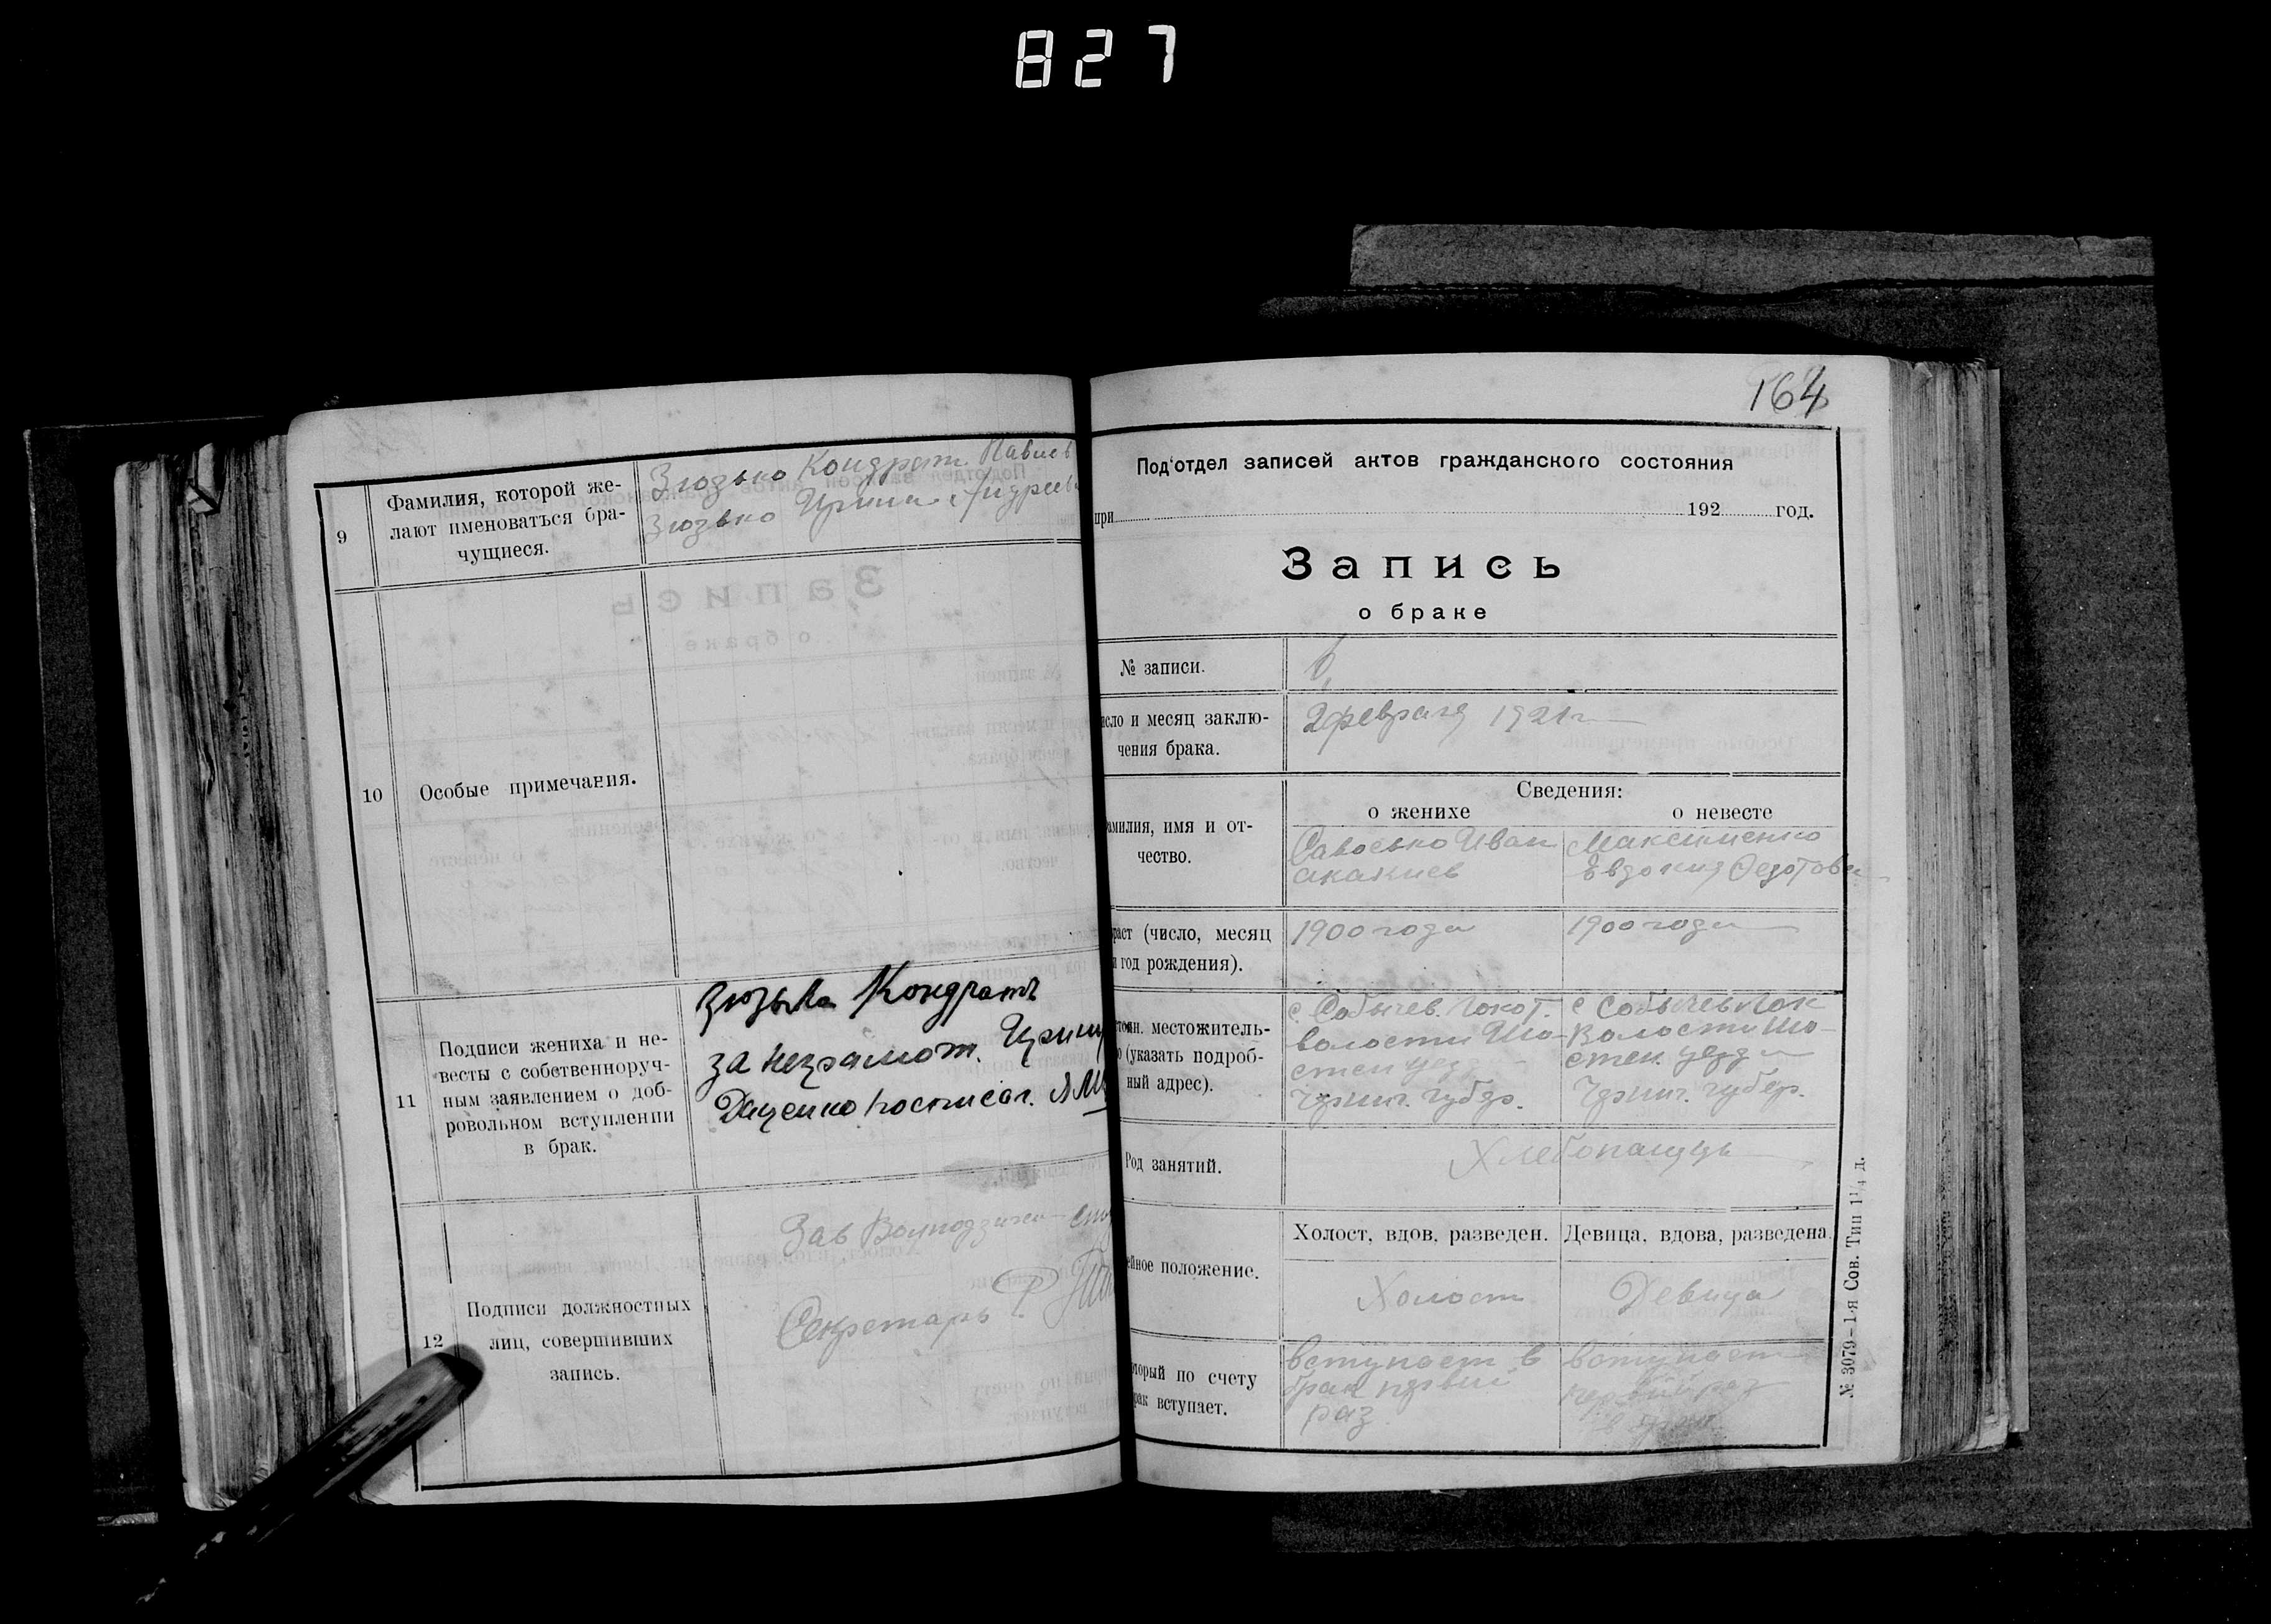 827
9
Фамилия, которой же-
лают именоваться бра-
чущиеся.
Зюзько Кондрат Павлов
Зюзько Ирина Андреев
10
Особые примечания.
11
Подписи жениха и не-
весты с собственноруч-
ным заявлением о доб-
ровольном вступлении
в брак.
Зюзько Кондратъ
за неграмот. Ирину
Даценко росписал.
12
Подписи должностных
лиц, совершивших
запись.
Зав
Секретарь
164
Под'отдел записей актов гражданского состояния
при 192 год.
Запись
о браке
№ записи.
6
исло и месяц заклю-
чения брака.
2 февраля 1921 г
Сведения:
о женихе
о невесте
амилия, имя и от-
чество.
Савосько Иван
акакиев
Максименко
Евдокия Федотова
раст (число, месяц
и год рождения).
1900 года
1900 года
тоян. местожитель-
о (указать подроб-
ный адрес).
с. Собычев. Локот.
волости Шо-
стен уезд
Черниг. губер.
с Собычев Лок
волости Шо-
стен. уезда
Черниг. губер.
Род занятий.
Хлебопащць
ейное положение.
Холост, вдов, разведен.
Девица, вдова, разведена.
Холост
Девица
оторый по счету
рак вступает.
вступает в
брак первый
раз.
вступает
первый раз
№ 3079—1-я Сов. Тип 1¼ д.